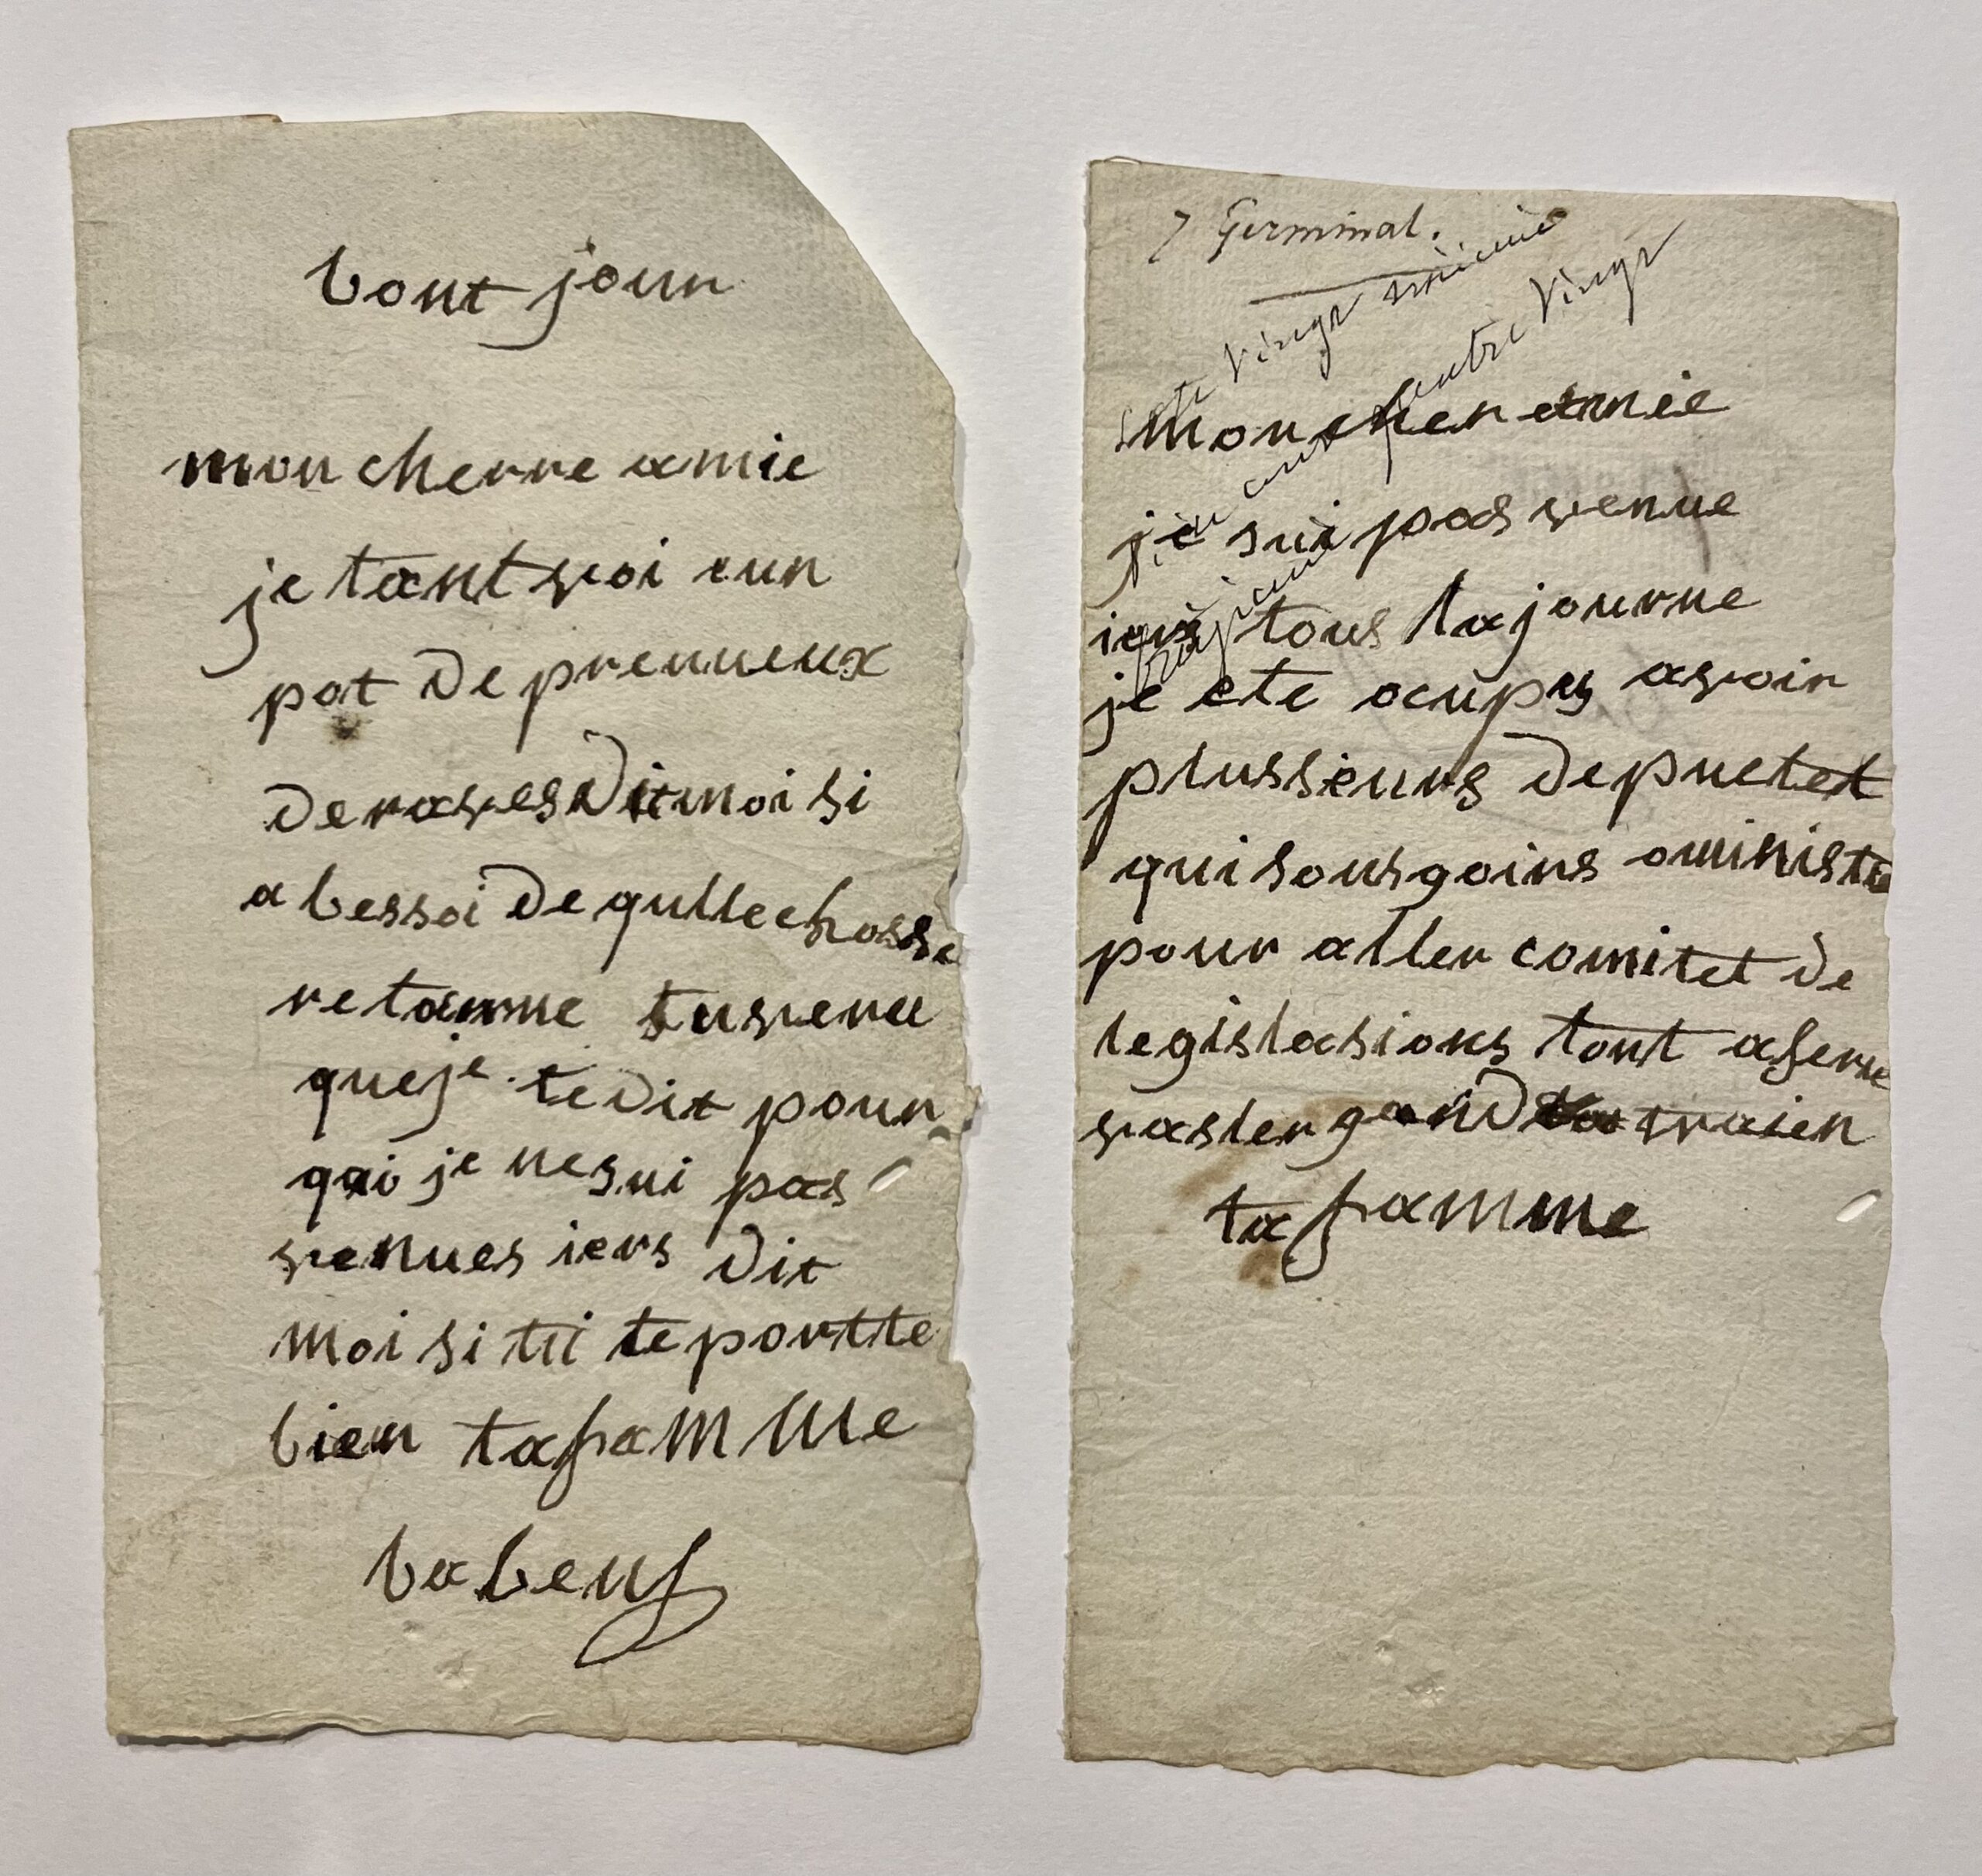 bont jour
mon cherre amie
je tant voi eun
pot de prenneux
de raves dit moi si
a bessoi de qulle chosse
retamme tu veru
que je te dit pour
qui je ne sui pas
venues iers dit
moi si tu te portte
bien ta famme
babeuf
7 Germinal.
Vingt
quatre Vingt
mon cher amie
je sui pas venue
iers tous la journe
je ete ocupes avoir
plussieurs depuetet
qui sous goins oministe
pour aller comitet de
legislasions tout aferre
vasler gand vraien
ta famme